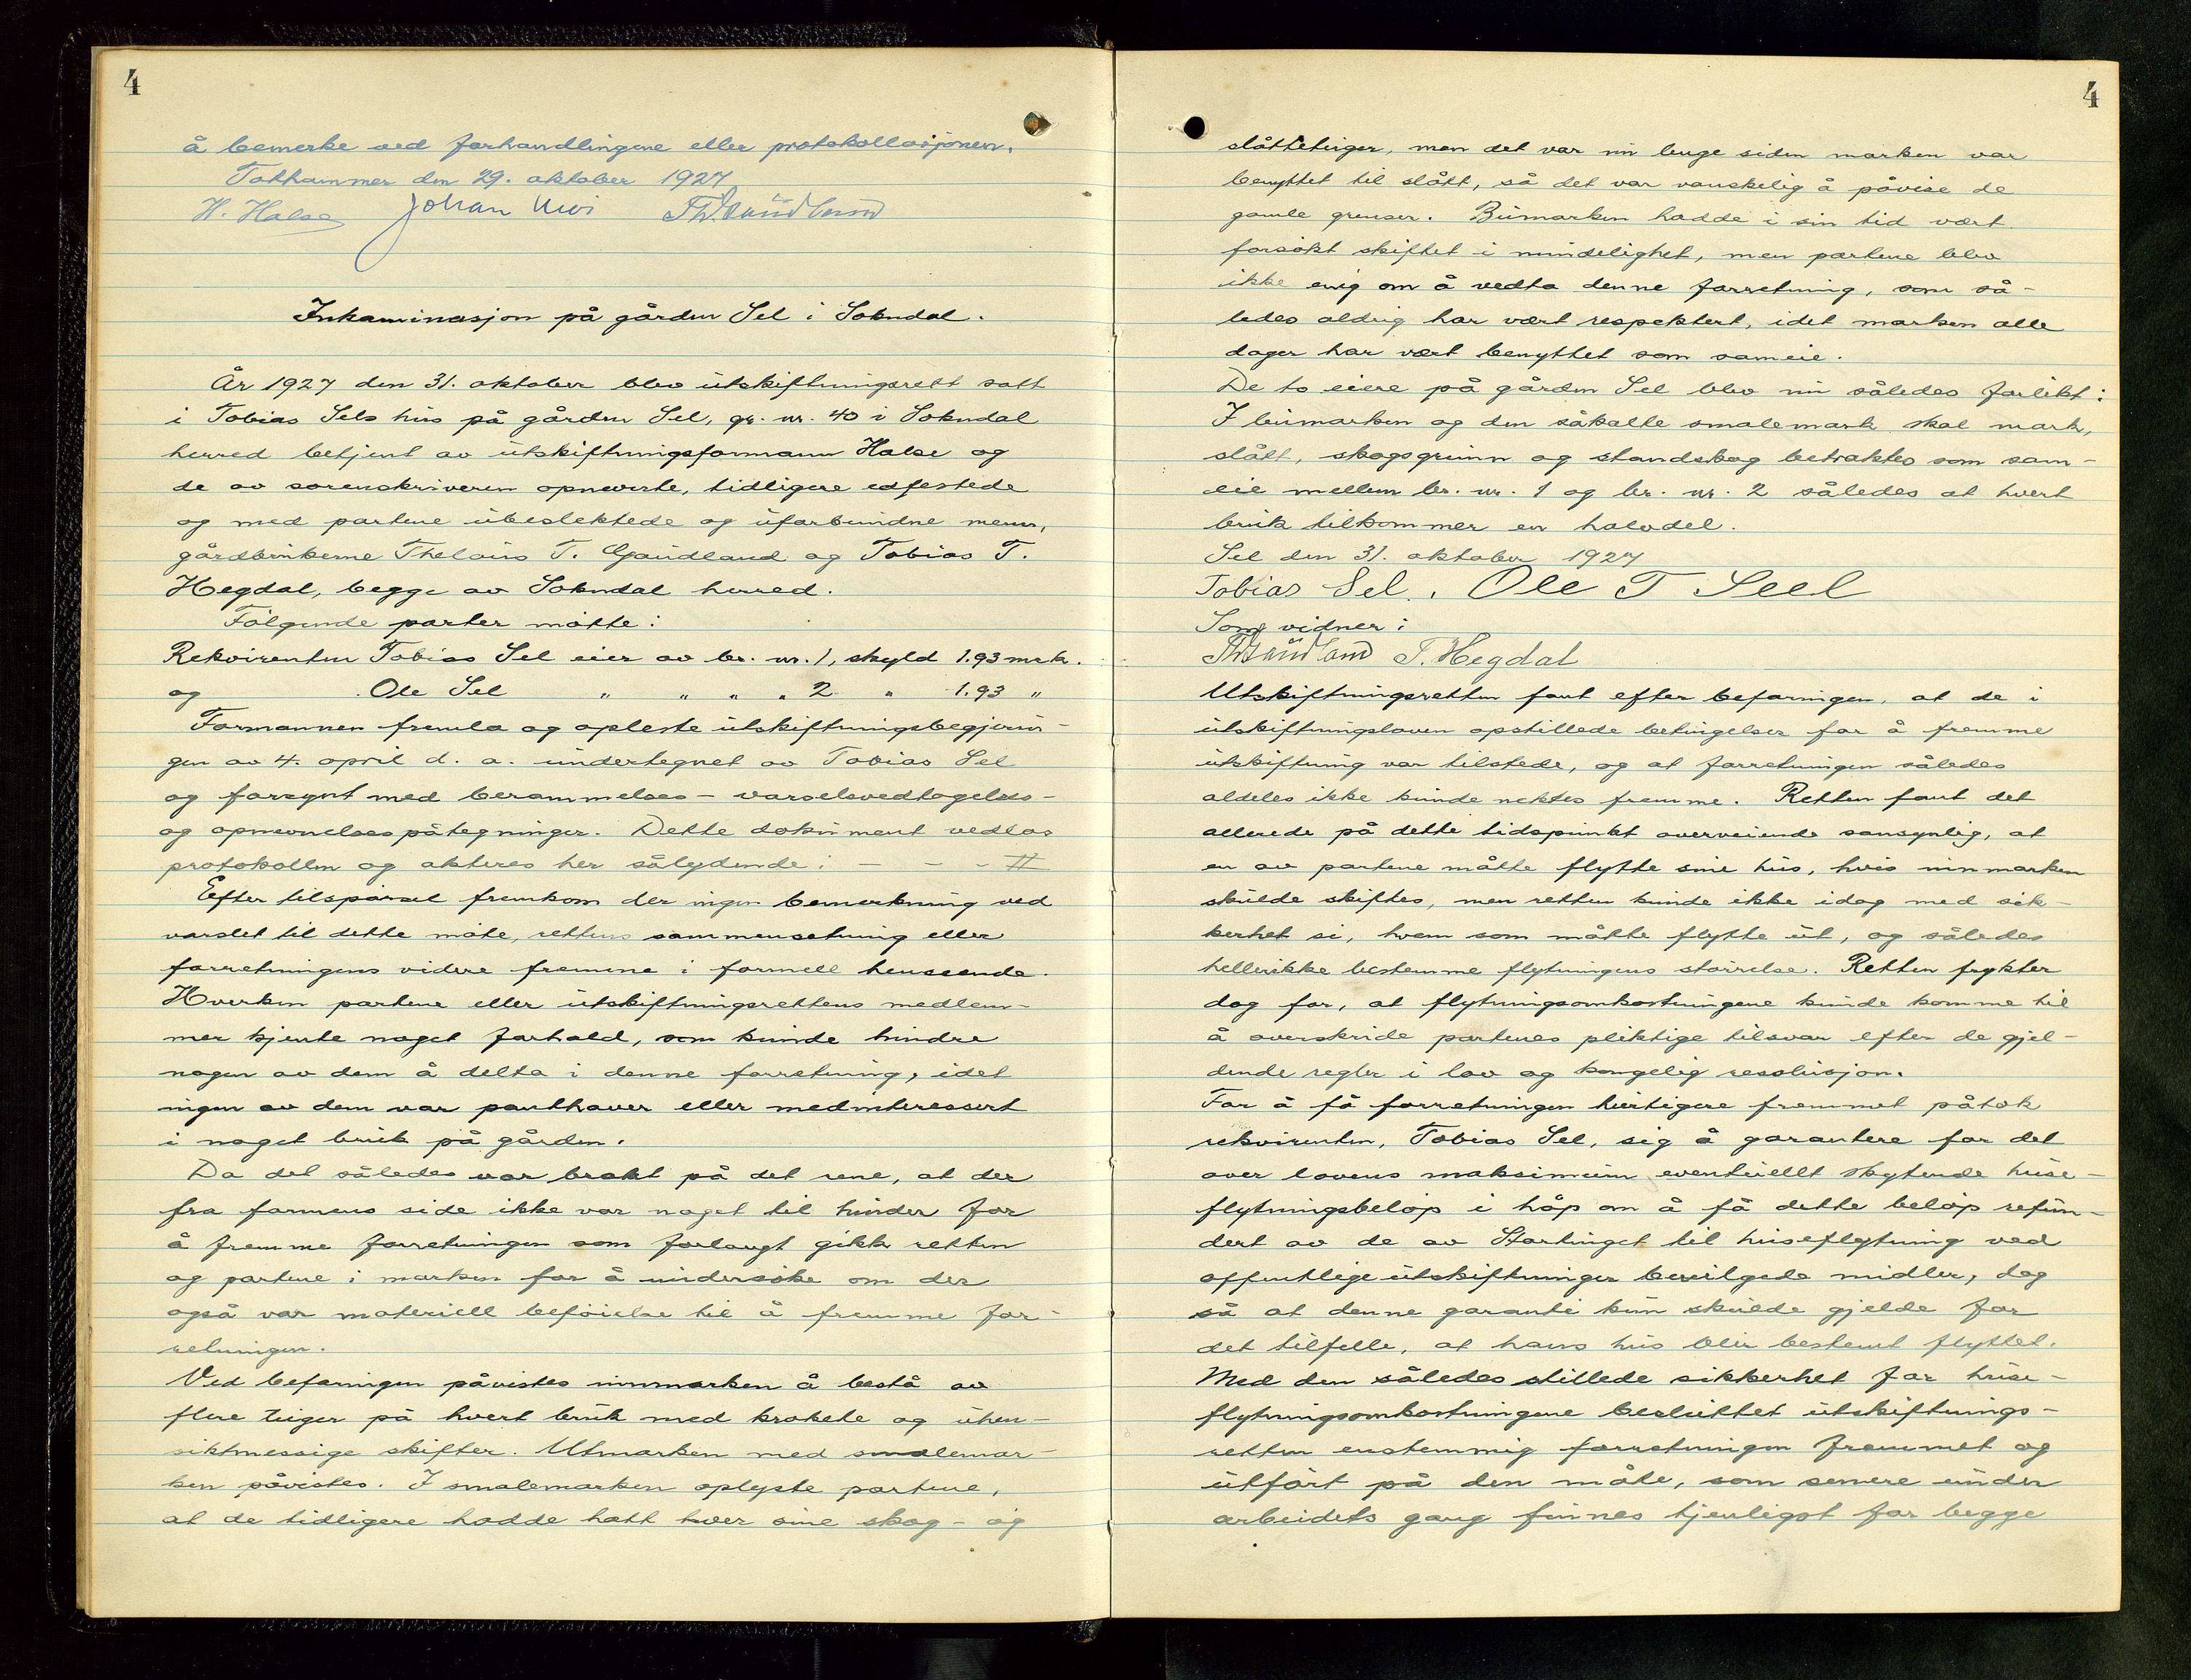 4
å bemerke ved forhandlingene eller protokollasjonen.
Tothammer den 29. oktober 1927
H. Halse Johan
Inkaminasjon på gården Sel i Sokndal.
År 1927 den 31. oktober blev utskiftningsrett satt
i Tobias Sels hus på gården Sel, gr. nr. 40 i Sokndal
herred betjent av utskiftningsformann Halse og
de av sorenskriveren opnevnte, tidligere edfestede
og med partene ubeslektede og uforbundne menn,
gårdbrukerne Thelaus T. Gaudland og Tobias T.
Hegdal, begge av Sokndal herred.
Følgende parter møtte:
Rekvirenten Tobias Sel eier av br. nr. 1, skyld 1.93 mrk.
og Ole Sel " " " " 2 " 1.93 "
Formannen fremla og opleste utskiftningsbegjærin-
gen av 4. april d. a. undertegnet av Tobias Sel
og forsynt med berammelses- varselsvedtagelses-
og opnevnelsespåtegninger. Dette dokument vedlas
protokollen og akteres her sålydende: - - - #
Efter tilspørsel fremkom der ingen bemerkning ved
varslet til dette møte, rettens sammensetning eller
forretningens videre fremme i formell henseende.
Hverken partene eller utskiftningsrettens medlem-
mer kjente noget forhold, som kunde hindre
nogen av dem å delta i denne forretning, idet
ingen av dem var panthaver eller medinteressert
i noget bruk på gården.
Da det således var brakt på det rene, at der
fra formens side ikke var noget til hinder for
å fremme forretningen som forlangt gikk retten
og partene i marken for å undersøke om der
også var materiell beføielse til å fremme for-
retningen.
Ved befaringen påvistes innmarken å bestå av
flere teiger på hvert bruk med krokete og uhen-
siktmessige skifter. Utmarken med smalemar-
ken påvistes. I smalemarken oplyste partene,
at de tidligere hadde hatt hver sine skog- og
4
slåtteteiger, men det var nu lenge siden marken var
benyttet til slått, så det var vanskelig å påvise de
gamle grenser. Bumarken hadde i sin tid vært
forsøkt skiftet i mindelighet, men partene blev
ikke enig om å vedta denne forretning, som så-
ledes aldrig har vært respektert, idet marken alle
dager har vært benyttet som sameie.
De to eiere på gården Sel blev nu således forlikt:
I bumarken og den såkalte smalemark skal mark,
slått, skogsgrunn og standskog betraktes som sam-
eie mellem br. nr. 1 og br. nr. 2 således at hvert
bruk tilkommer en halvdel.
Sel den 31. oktober 1927
Tobias Sel. Ole T Seel
Som vidner:
T. Hegdal
Utskiftningsretten fant efter befaringen, at de i
utskiftningsloven opstillede betingelser for å fremme
utskiftning var tilstede, og at forretningen således
aldeles ikke kunde nektes fremme. Retten fant det
allerede på dette tidspunkt overveiende sansynlig, at
en av partene måtte flytte sine hus, hvis innmarken
skulde skiftes, men retten kunde ikke idag med sik-
kerhet si, hvem som måtte flytte ut, og således
hellerikke bestemme flytningens størrelse. Retten frykter
dog for, at flytningsomkostningene kunde komme til
å overskride partenes pliktige tilsvar efter de gjel-
dende regler i lov og kongelig resolusjon.
For å få forretningen hurtigere fremmet påtok
rekvirenten, Tobias Sel, sig å garantere for det
over lovens maksimum eventuellt skytende huse-
flytningsbeløp i håp om å få dette beløp refun-
dert av de av Stortinget til huseflytning ved
offentlige utskiftninger bevilgede midler, dog
så at denne garanti kun skulde gjelde for
det tilfelle, at hans hus blir bestemt flyttet.
Med den således stillede sikkerhet for huse-
flytningsomkostningene besluttet utskiftnings-
retten enstemmig forretningen fremmet og
utført på den måte, som senere under
arbeidets gang finnes tjenligst for begge